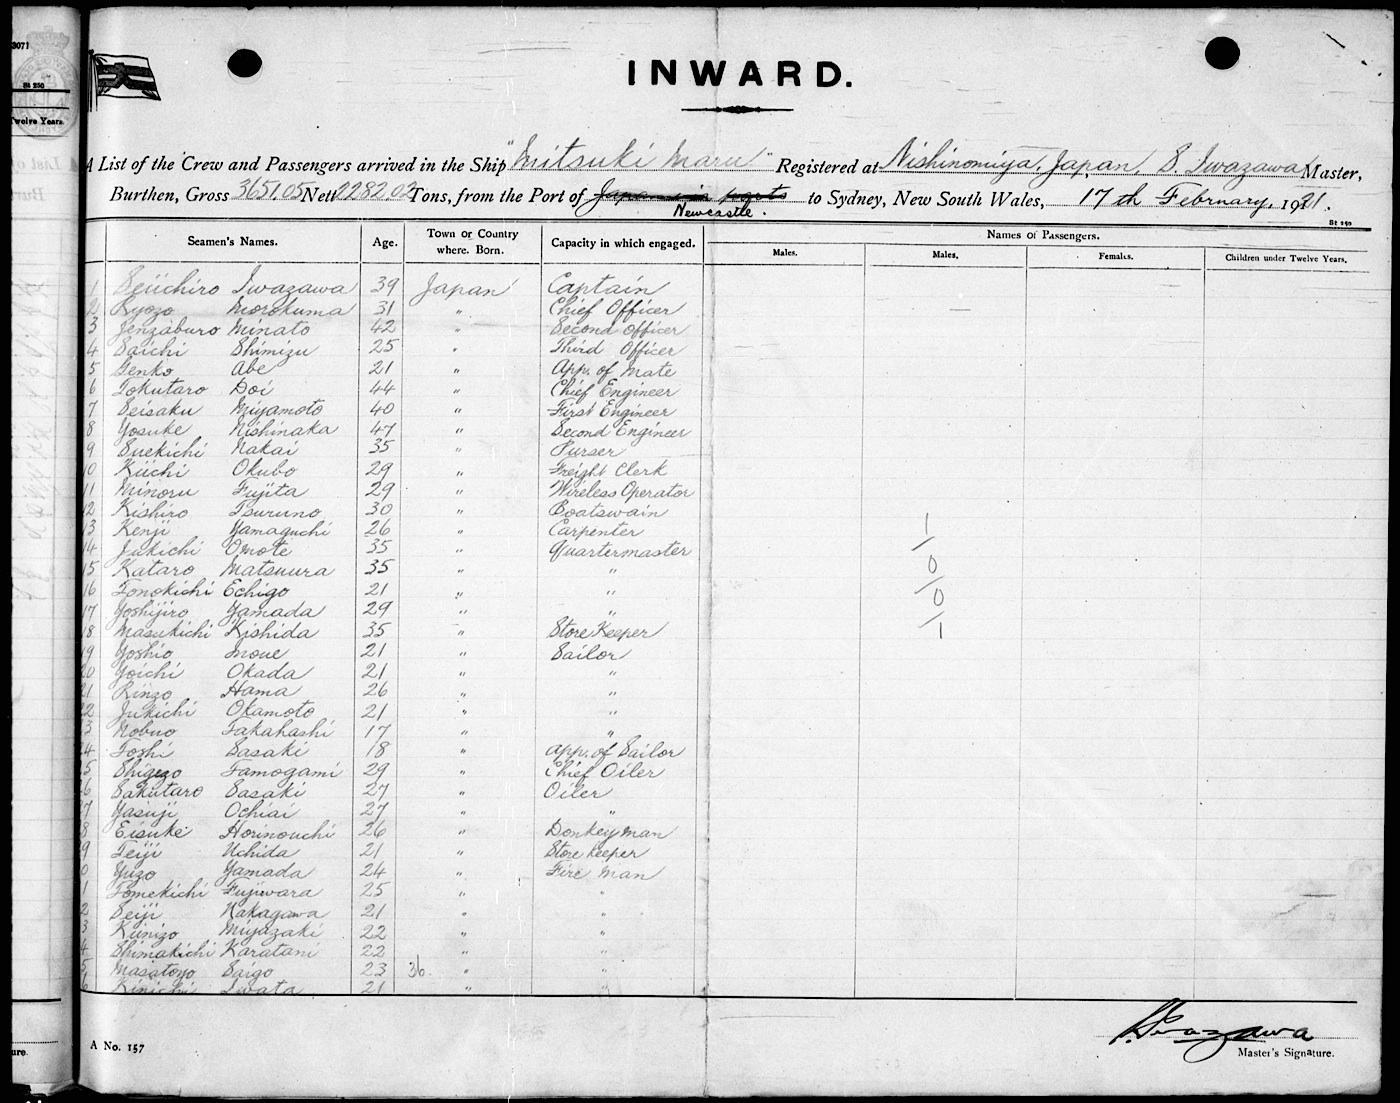 3071
St 250
Twelve Years.
INWARD.
A List of the Crew and Passengers arrived in the Ship "Mitsuki Maru" Registered at Nishinomiya, Japan, S. Iwazawa Master,
Burthen, Gross 3651.05 Nett 2282.02 Tons, from the Port of Japan via ports to Sydney, New South Wales, 17th February, 1921.
Newcastle.
St 250
Seamen's Names. Age. Town or Country where. Born. Capacity in which engaged. Names of Passengers.
Males. Males. Females. Children under Twelve Years.
1 Seiichiro Iwazawa 39 Japan Captain
2 Ryozo Morokuma 31 " Chief Officer
3 Jenzaburo Minato 42 " Second Officer
4 Saichi Shimizu 25 " Third Officer
5 Genko Abe 21 " App. of Mate
6 Tokutaro Doi 44 " Chief Engineer
7 Seisaku Miyamoto 40 " First Engineer
8 Yosuke Nishinaka 47 " Second Engineer
9 Suekichi Nakai 35 " Purser
10 Kiichi Okubo 29 " Freight Clerk
11 Minoru Fujita 29 " Wireless Operator
12 Kishiro Tsuruno 30 " Boatswain
13 Kenji Yamaguchi 26 " Carpenter
14 Jukichi Omote 35 " Quartermaster
15 Kataro Matsuura 35 " "
16 Tonokichi Echigo 21 " "
17 Yoshijiro Yamada 29 " "
18 Masukichi Kishida 35 " Store Keeper
19 Yoshio Inoue 21 " Sailor
20 Yoichi Okada 21 " "
21 Rinzo Hama 26 " "
22 Jukichi Okamoto 21 " "
3 Nobuo Takahashi 17 " "
4 Toshi Sasaki 18 " App. of Sailor
5 Shigezo Tamogami 29 " Chief Oiler
6 Sakutaro Sasaki 27 " Oiler
7 Yasuji Ochiai 27 " "
8 Eisuke Horinouchi 26 " Donkey man
9 Teiji Uchida 21 " Store keeper
0 Yuzo Yamada 24 " Fire man
1 Tomekichi Fujiwara 25 " "
2 Seiji Nakagawa 21 " "
3 Kunizo Miyazaki 22 " "
4 Shimakichi Karatani 22 " "
5 Masatoyo Saigo 23 36. " "
6 Kinichi Iwata 21 " "
1
0
0
1
S. Iwazawa
Master's Signature.
A No. 157
ure.